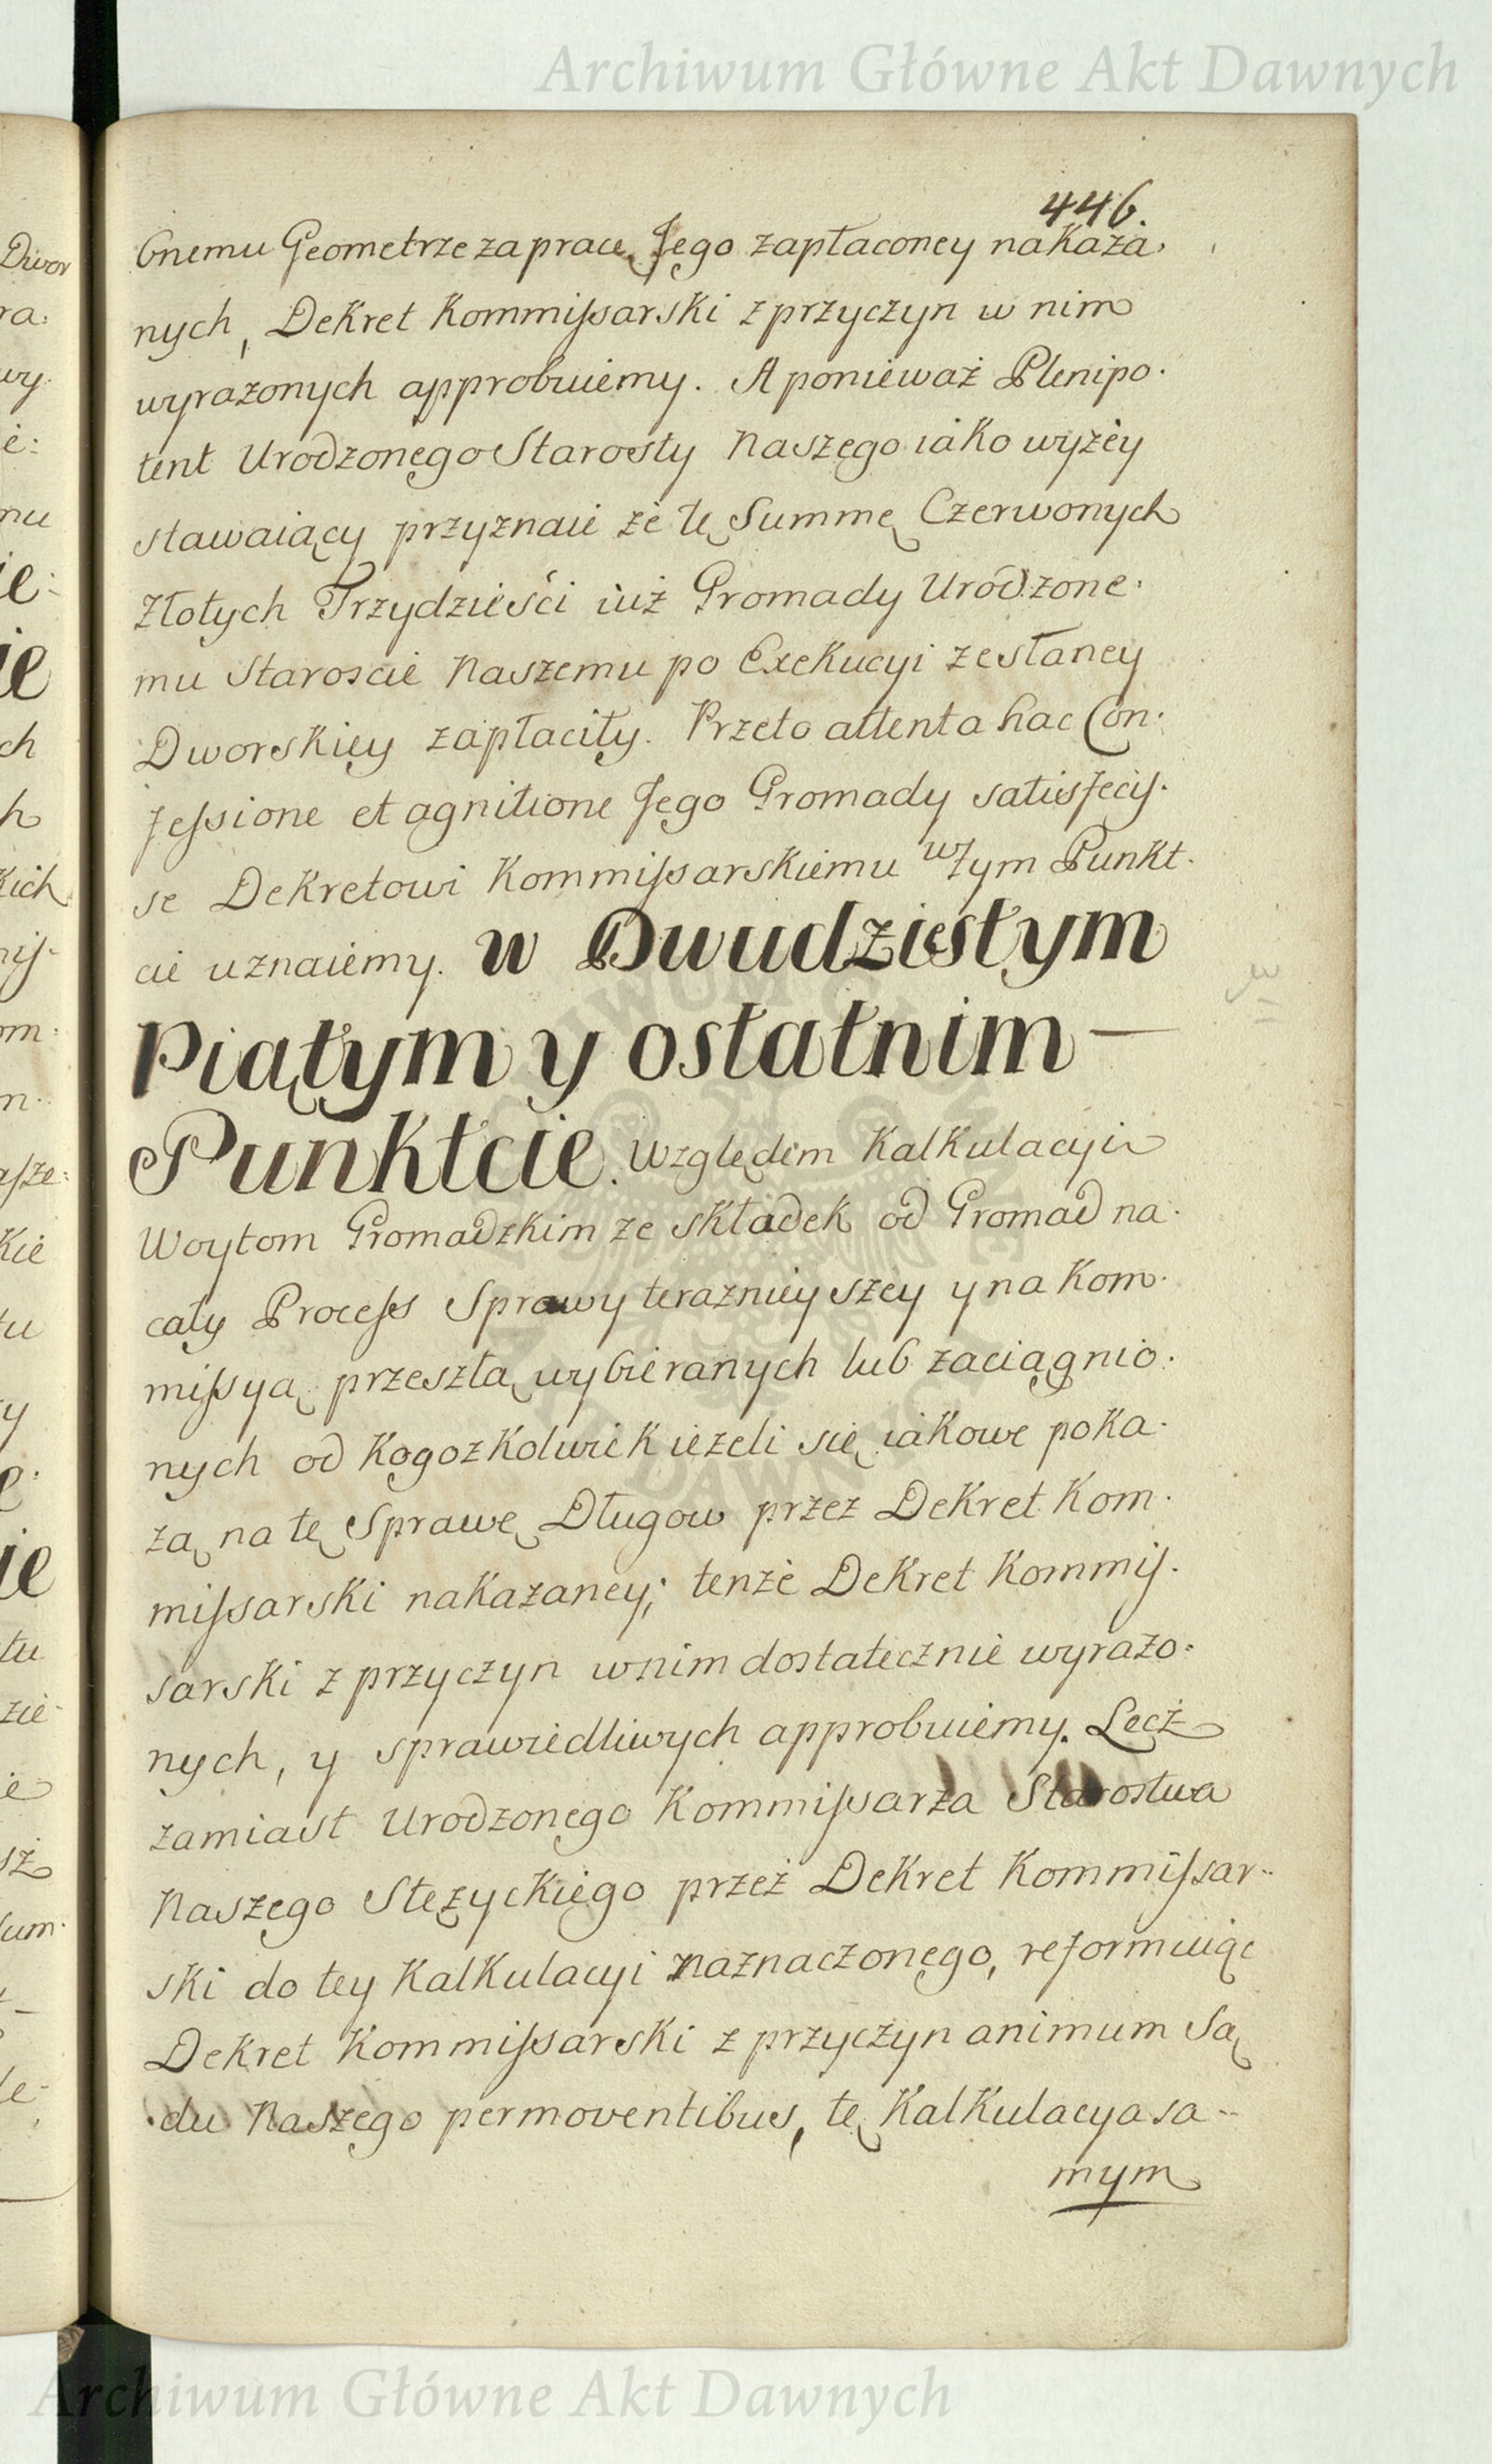 Archiwum Główne Akt Dawnych
446.
bnemu Geometrze za pracę Jego zapłaconey nakaza:
nych, Dekret Kommissarski z przyczyn w nim
wyrazonych approbuiemy. A ponieważ Plenipo:
tent Urodzonego Starosty Naszego iako wyzey
stawaiący przyznaie że tę Summę Czerwonych
Złotych Trzydzieści iuż Gromady Urodzone:
mu Staroscie Naszemu po Exekucyi zesłaney
Dworskiey zapłaciły. Przeto attenta hac Con:
fessione et agnitione Jego Gromady satisfecis:
se Dekretowi Kommissarskiemu w tym Punkt:
cie uznaiemy. w Dwudziestym
Piątym y ostatnim —
Punktcie. Względem Kalkulacyi
Woytom Gromadzkim ze składek od Gromad na:
cały Process Sprawy terazniey szey y na Kom:
missyą przeszłą wybieranych lub zaciągnio:
nych od Kogozkolwiek iezeli się iakowe poka:
zą na tę Sprawę Długow przez Dekret Kom:
missarski nakazaney; tenże Dekret Kommis:
sarski z przyczyn w nim dostatecznie wyrazo:
nych, y sprawiedliwych approbuiemy. Lecz
zamiast Urodzonego Kommissarza Starostwa
Naszego Stęzyckiego przez Dekret Kommissar:
ski do tey Kalkulacyi naznaczonego, reformuiąc
Dekret Kommissarski z przyczyn animum Są
du Naszego permoventibus, tę Kalkulacya sa:
mym
Archiwum Główne Akt Dawnych